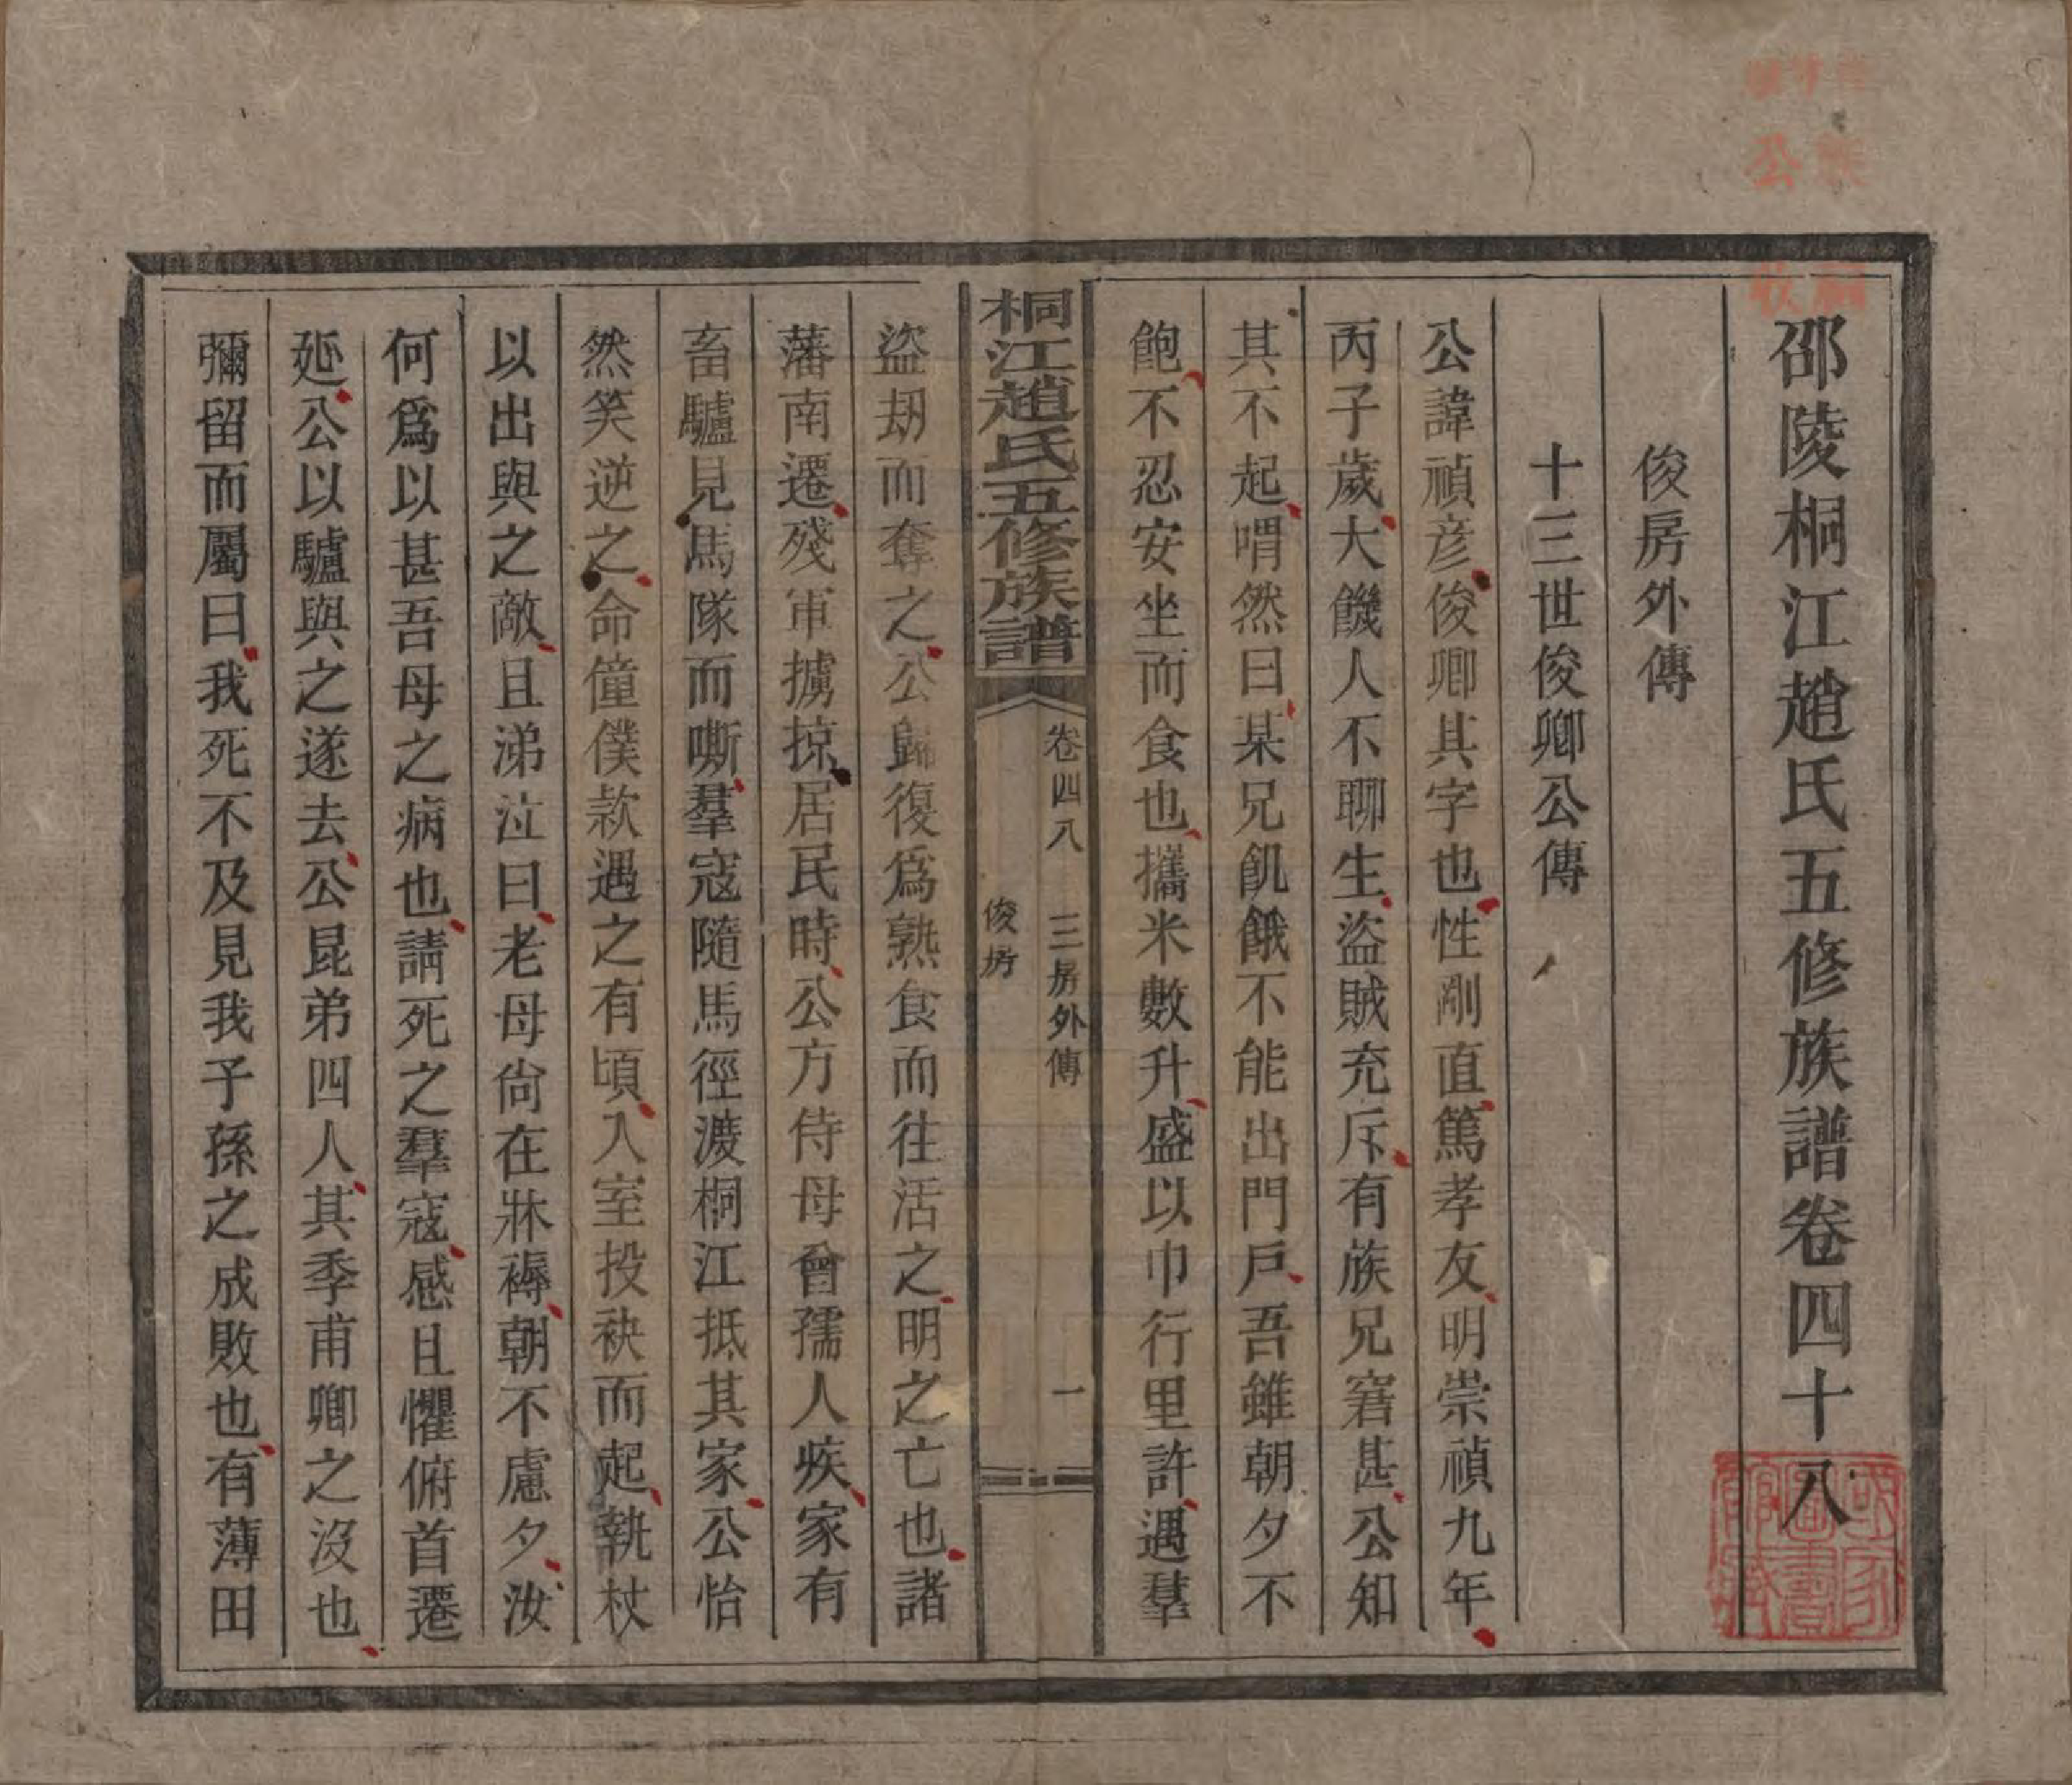 邵陵桐江趙氏五修族譜卷四十八
俊房外傳
十三世俊卿公傳
公諱禎彦俊卿其字也性剛直篤孝友明崇禎九年
丙子歲大饑人不聊生盜賊充斥有族兄窘甚公知
其不起喟然曰某兄飢餓不能出門戶吾雖朝夕不
飽不忍安坐而食也攜米數升盛以巾行里許遇羣
桐江趙氏五修族譜
卷四八 三房外傳 一
俊房
盜刼而奪之公歸復爲熟食而往活之明之亡也諸
藩南遷殘軍擄掠居民時公方侍母曾孺人疾家有
畜驢見馬隊而嘶羣寇隨馬徑渡桐江抵其家公怡
然笑逆之命僮僕款遇之有頃入室投袂而起執杖
以出與之敵且涕泣曰老母尙在牀褥朝不慮夕汝
何爲以甚吾母之病也請死之羣寇感且懼俯首遷
延公以驢與之遂去公昆弟四人其季甫卿之沒也
彌留而屬曰我死不及見我子孫之成敗也有薄田
國家圖書館藏